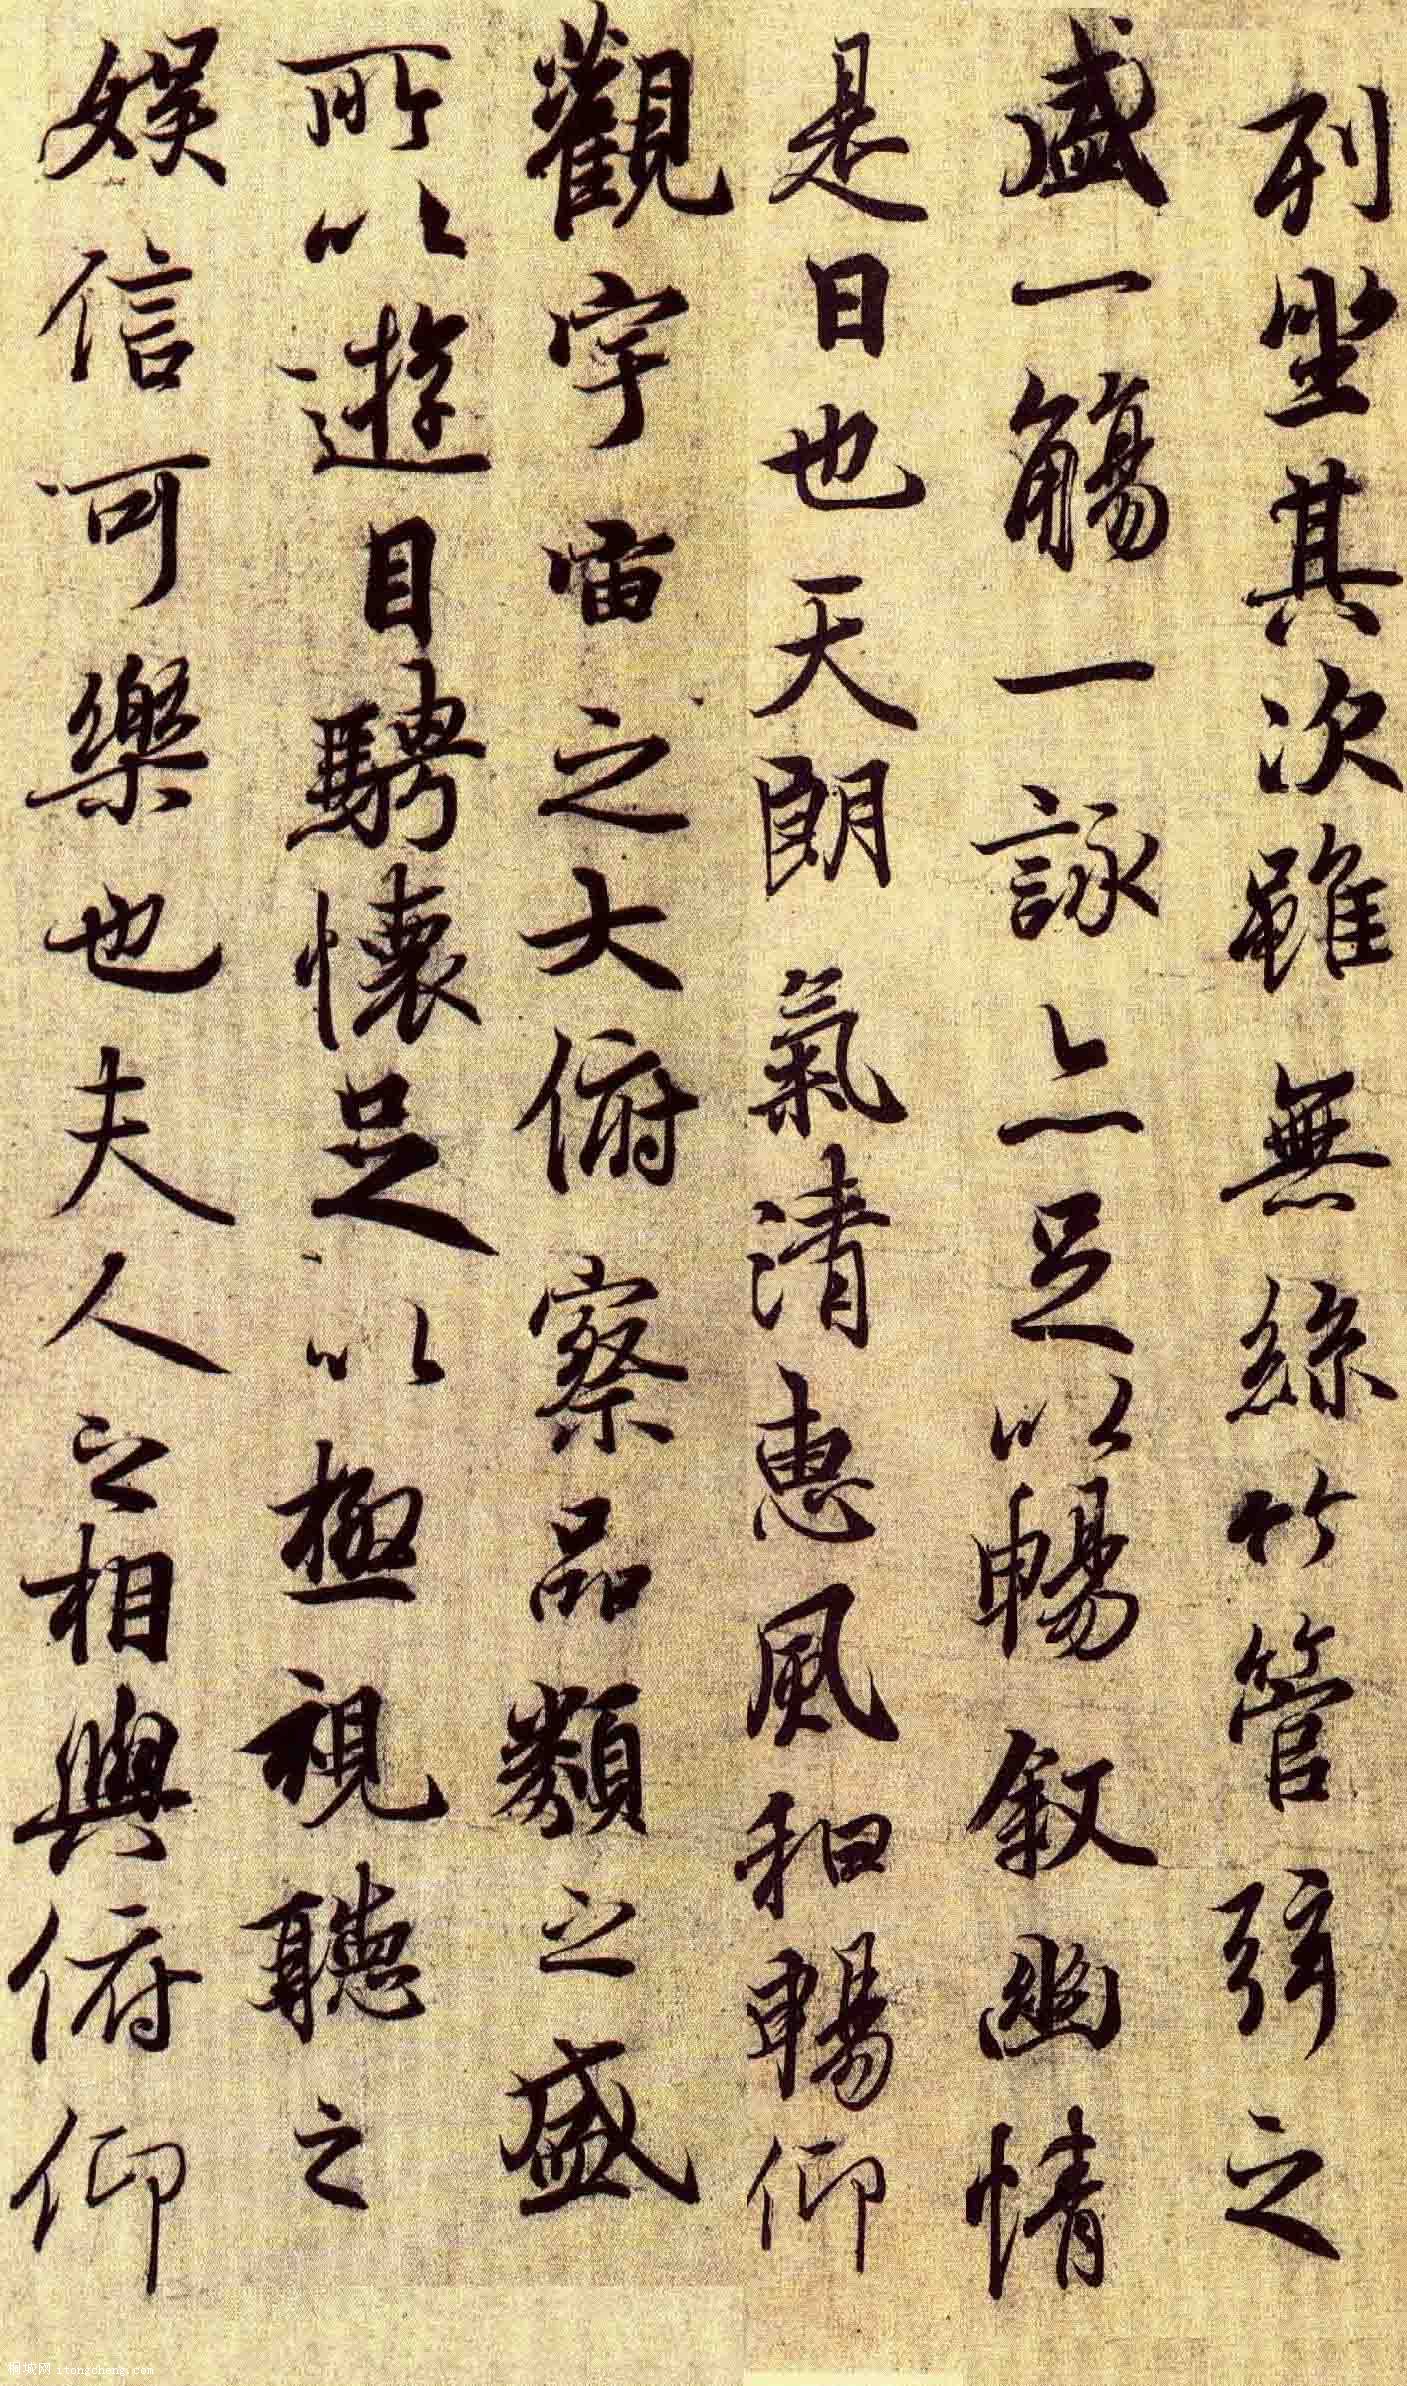 列坐其次雖無絲竹管弦之
盛一觴一詠亦足以暢敘幽情
是日也天朗氣清惠風和暢仰
觀宇宙之大俯察品類之盛
所以遊目騁懷足以極視聽之
娛信可樂也夫人之相與俯仰
桐城网 itongcheng.com